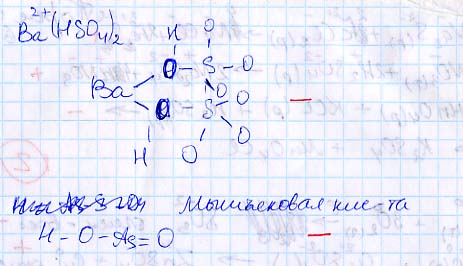 Ba²⁺(HSO₄)₂
H O
O – S – O
Ba O
O – S O
H O O
Мышьяковая кис-та
H – O – As = O